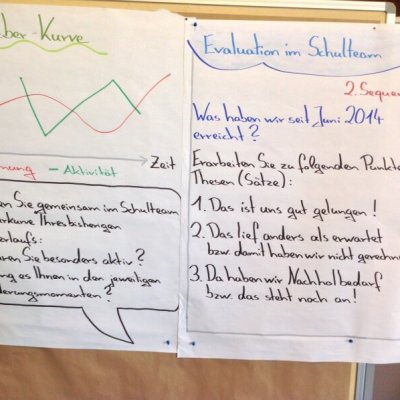 ber-Kurve
Zeit
nung - Aktivität
en Sie gemeinsam im Schulteam
erlaufs:
ren Sie besonders aktiv?
ng es Ihnen in den jeweiligen
derungsmomenten?
Evaluation im Schulteam
2. Seque
Was haben wir seit Juni 2014
erreicht?
Erarbeiten Sie zu folgenden Punkte
Thesen (Sätze):
1. Das ist uns gut gelungen!
2. Das lief anders als erwartet
bzw. damit haben wir nicht gerechne
3. Da haben wir Nachholbedarf
bzw. das steht noch an!